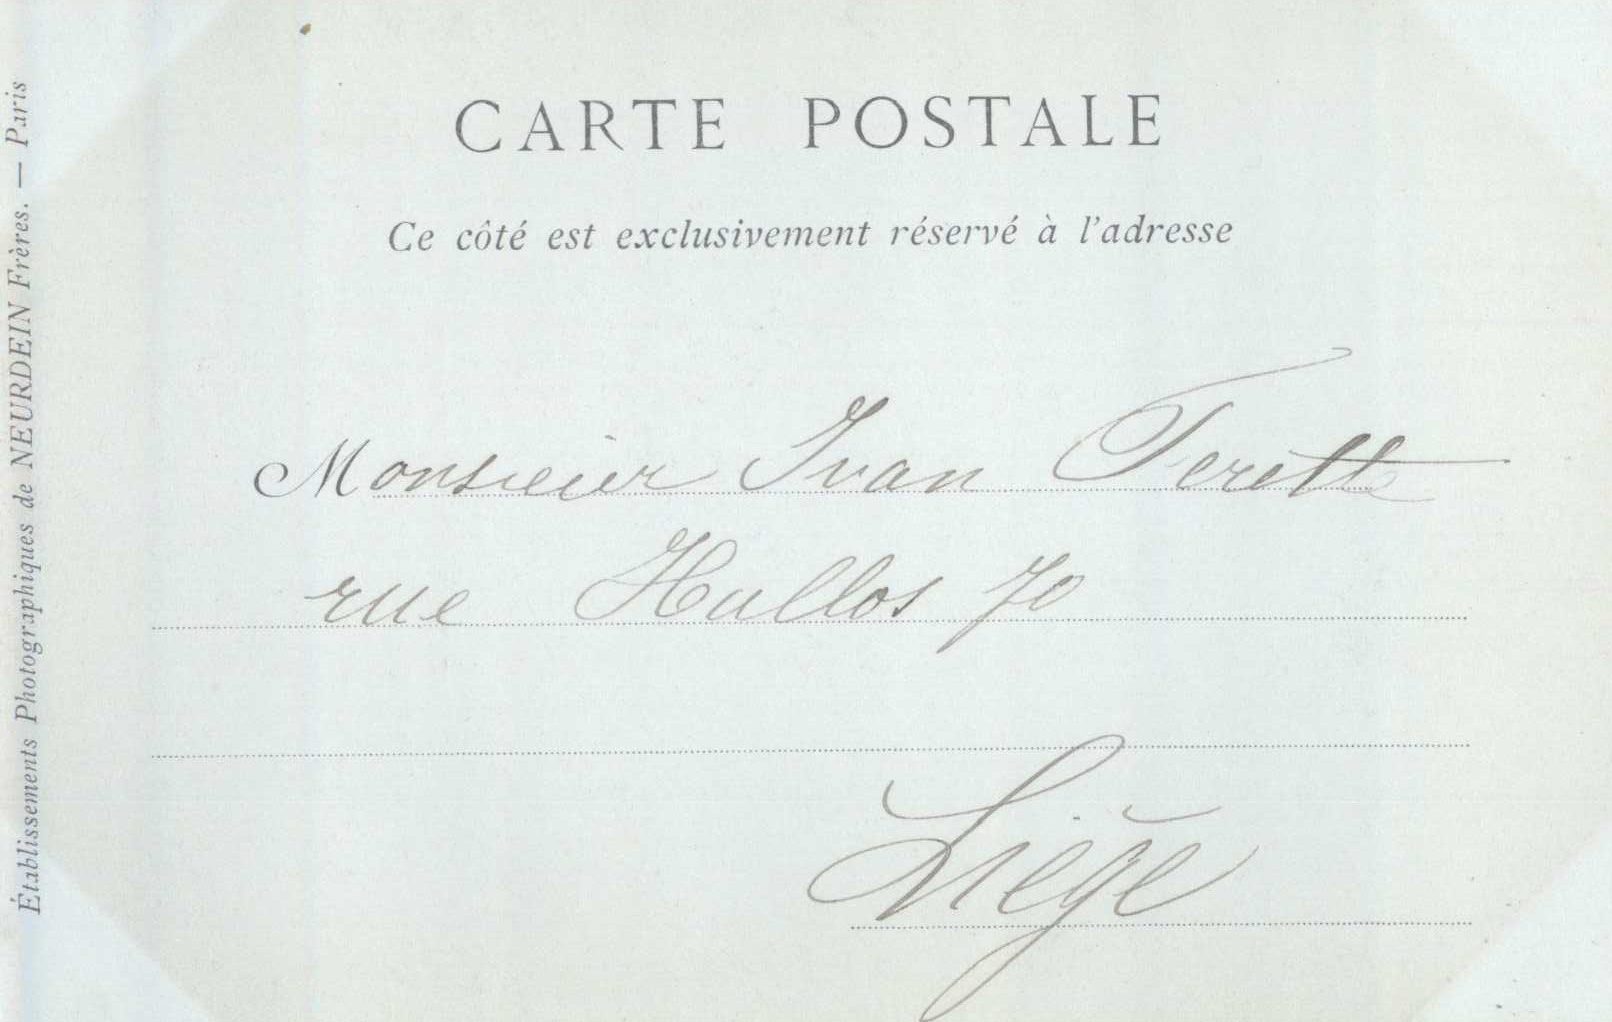 CARTE POSTALE
Ce côté est exclusivement réservé à l'adresse
Monsieur Ivan
rue Hullos 70
Liége
Établissements Photographiques de NEURDEIN Frères. — Paris